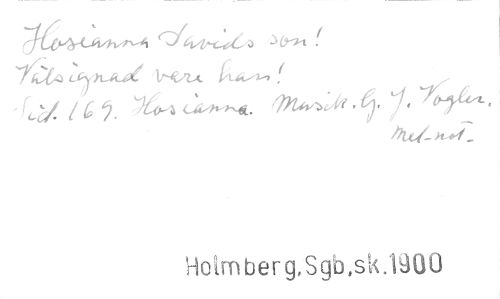 Hosianna Davids son!
Välsignad vare han!
Sid. 169. Hosianna. Musik. G. J. Vogler.
Mel-not-
Holmberg,Sgb,sk.1900